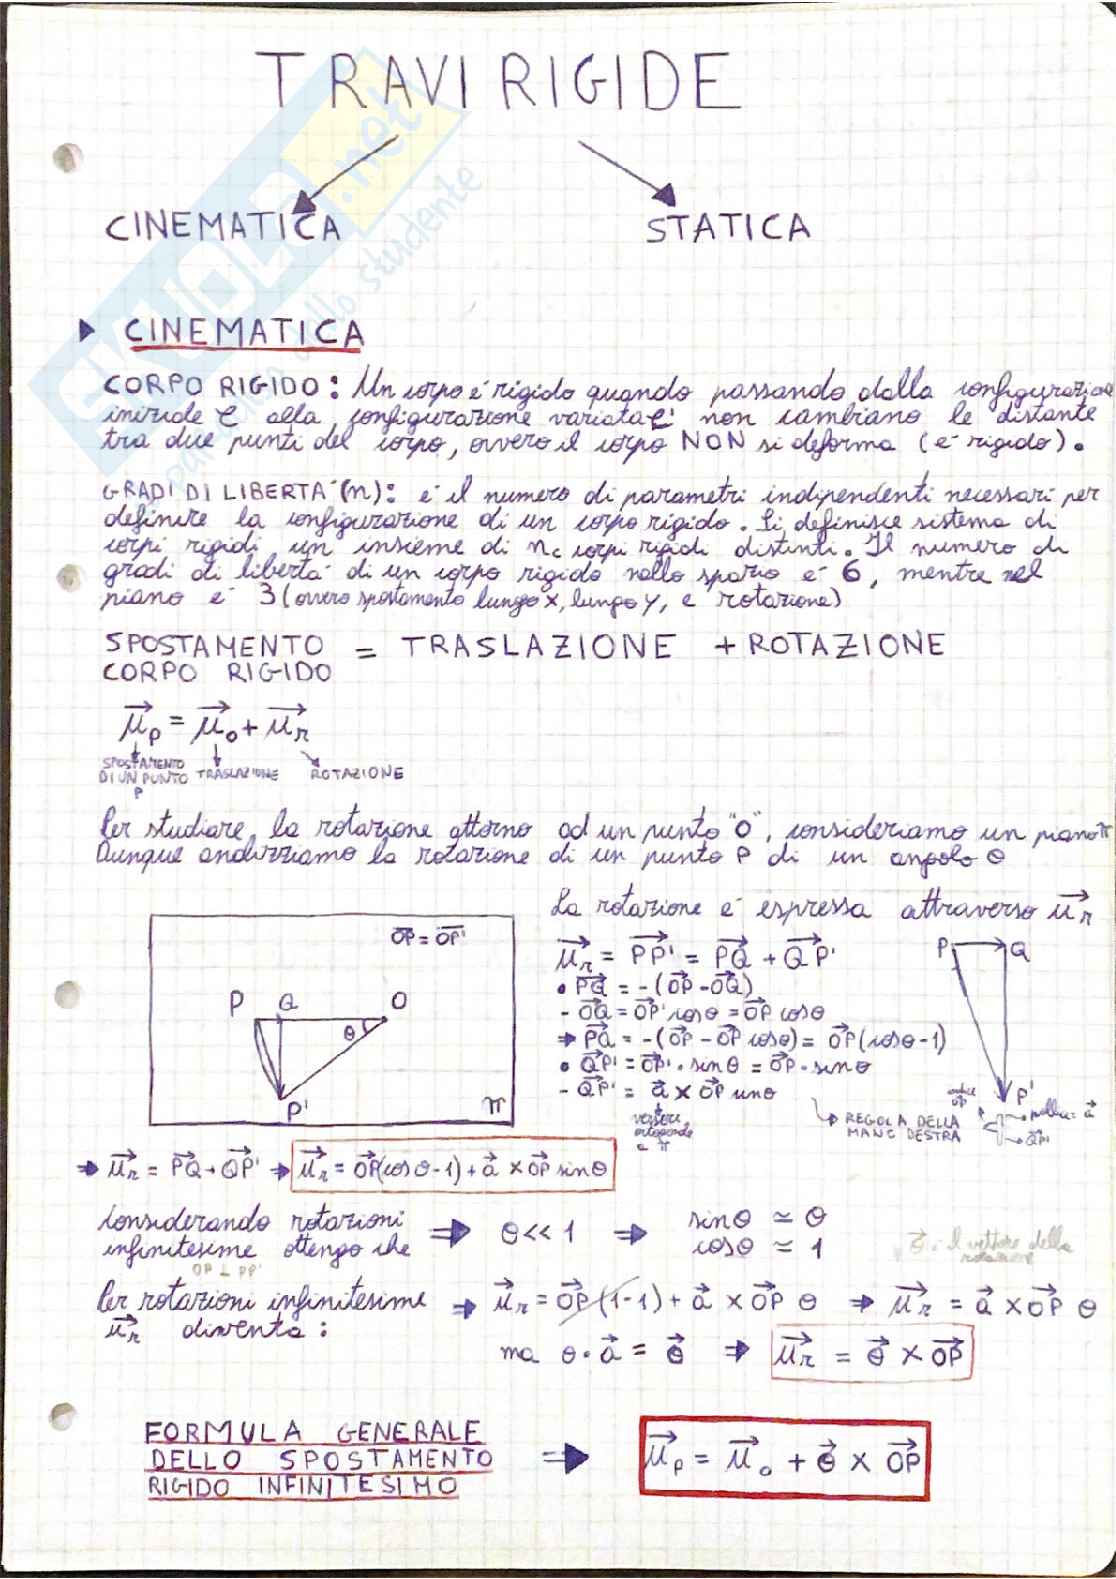 TRAVI RIGIDE
CINEMATICA
STATICA
CINEMATICA
CORPO RIGIDO: Un corpo é rigido quando passando dalla configurazione
iniziale C alla configurazione variata C' non cambiano le distante
tra due punti del corpo, ovvero il corpo NON si deforma (é rigido).
GRADI DI LIBERTA' (n): é il numero di parametri indipendenti necessari per
definire la configurazione di un corpo rigido. Si definisce sistema di
corpi rigidi un insieme di nc corpi rigidi distinti. Il numero di
gradi di libertá di un corpo rigido nello spazio é 6, mentre nel
piano é 3 (ovvero spostamento lungo x, lungo y, e rotazione)
SPOSTAMENTO = TRASLAZIONE + ROTAZIONE
CORPO RIGIDO
μ⃗p = μ⃗o + μ⃗r
SPOSTAMENTO DI UN PUNTO P
TRASLAZIONE
ROTAZIONE
Per studiare la rotazione attorno ad un punto "O", consideriamo un piano π
Dunque analizziamo la rotazione di un punto P di un angolo θ
La rotazione é espressa attraverso μ⃗r
OP = OP'
P Q O
θ
P'
π
μ⃗r = PP'⃗ = PQ⃗ + QP'⃗
• PQ⃗ = -(OP⃗ - OQ⃗)
- OQ⃗ = OP'⃗ cosθ = OP⃗ cosθ
⇒ PQ⃗ = -(OP⃗ - OP⃗ cosθ) = OP⃗(cosθ-1)
• QP'⃗ = OP'⃗ · sinθ = OP⃗ · sinθ
- QP'⃗ = a⃗ × OP⃗ sinθ
versore ortogonale a π
REGOLA DELLA
MANO DESTRA
P Q
P'
pollice: a⃗
QP'
⇒ μ⃗r = PQ⃗ + QP'⃗ ⇒ μ⃗r = OP⃗(cosθ-1) + a⃗ × OP⃗ sinθ
Considerando rotazioni
infinitesime ottengo che ⇒ θ << 1 ⇒ sinθ ≃ θ
cosθ ≃ 1
θ⃗: il vettore della
rotazione
OP ⊥ PP'
Per rotazioni infinitesime
μ⃗r diventa: ⇒ μ⃗r = OP⃗(1-1) + a⃗ × OP⃗ θ ⇒ μ⃗r = a⃗ × OP⃗ θ
ma θ·a⃗ = θ⃗ ⇒ μ⃗r = θ⃗ × OP⃗
FORMULA GENERALE
DELLO SPOSTAMENTO
RIGIDO INFINITESIMO
⇒ μ⃗p = μ⃗o + θ⃗ × OP⃗